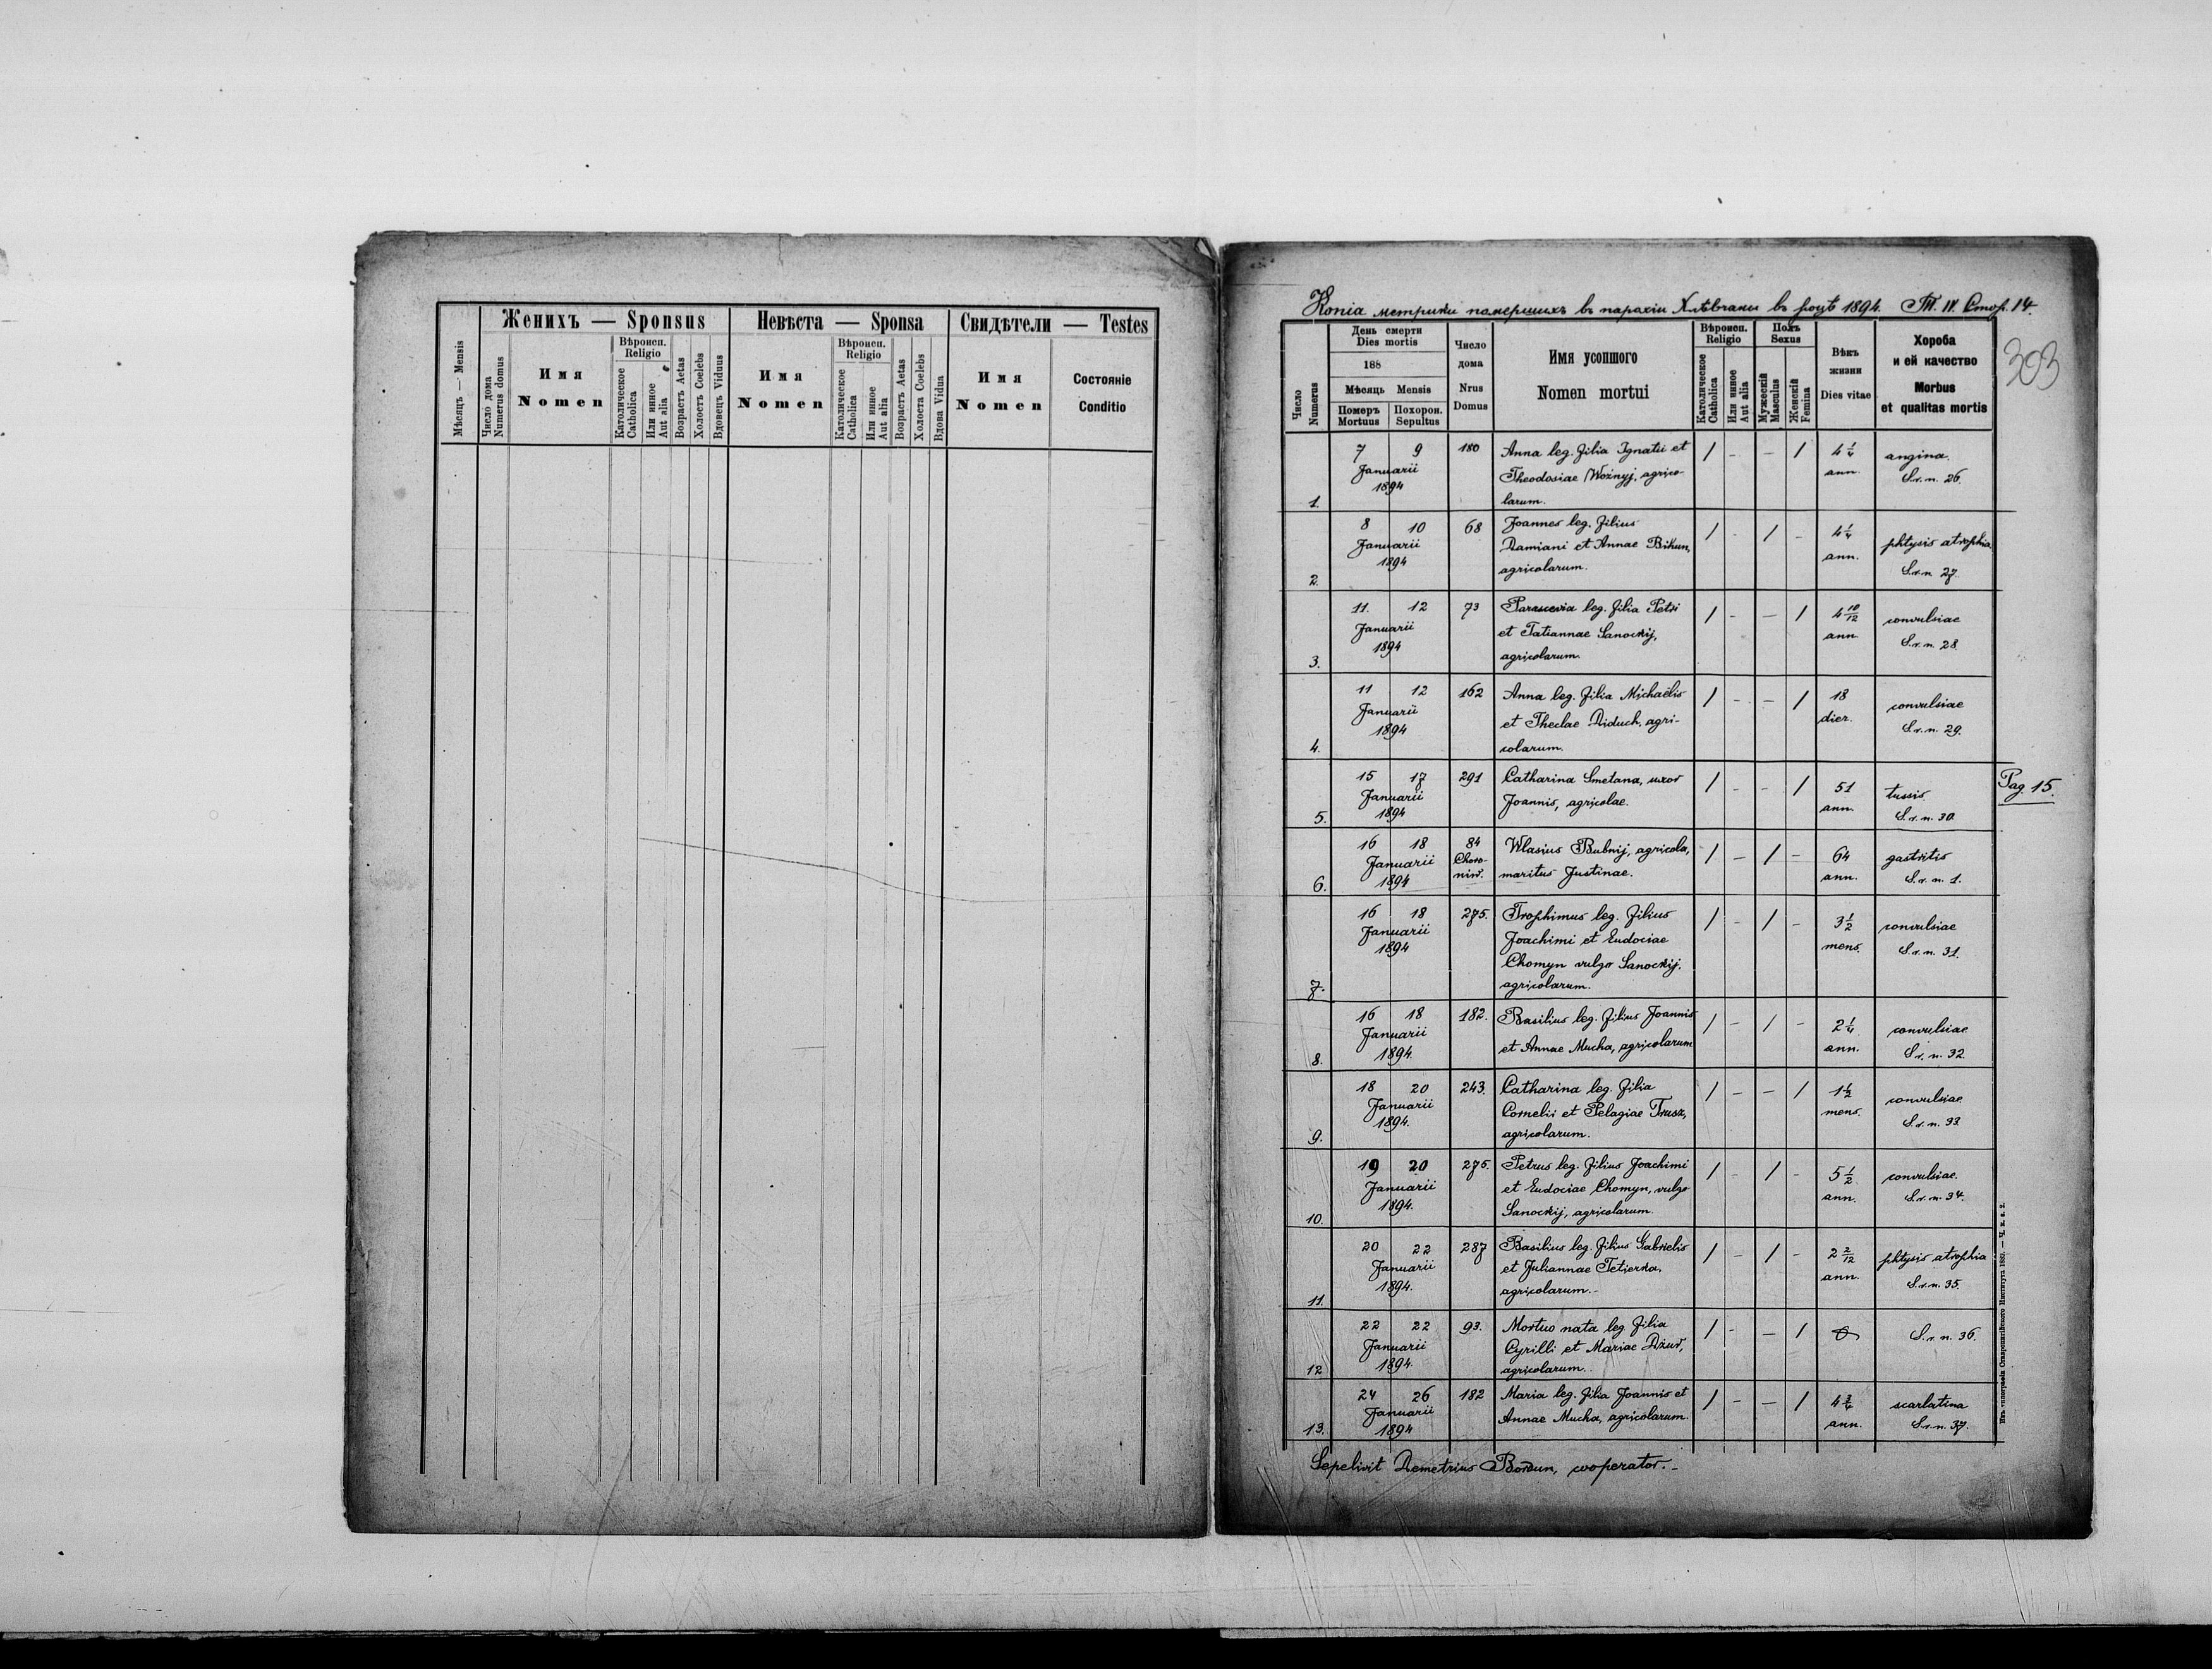 Женихъ — Sponsus
Невѣста — Sponsa
Свидѣтели — Testes
Мѣсяцъ — Mensis
Число дома
Numerus domus
Имя
Nomen
Вѣроисп.
Religio
Католическое
Catholica
Или инное
Aut alia
Возрастъ Aetas
Холостъ Coelebs
Вдовецъ Viduus
Имя
Nomen
Вѣроисп.
Religio
Католическое
Catholica
Или инное
Aut alia
Возрастъ Aetas
Холоста Coelebs
Вдова Vidua
Имя
Nomen
Состояніе
Conditio
Копіа метрики помершихъ въ парохіи Хлѣвчаны въ роцѣ 1894. Т. IV. Стор. 14.
303
Число
Numerus
День смерти
Dies mortis
188
Мѣсяць Mensis
Померъ
Mortuus
Похорон.
Sepultus
Число
дома
Nrus
Domus
Имя усопшого
Nomen mortui
Вѣроисп.
Religio
Католическое
Catholica
Или инное
Aut alia
Полъ
Sexus
Мужескій
Masculus
Женскій
Femina
Вѣкъ
жизни
Dies vitae
Хороба
и ей качество
Morbus
et qualitas mortis
1. 7 9 Januarii 1894 180 Anna leg. filia Ignatii et / - - / 4 1/4 ann. angina.
Theodosiae Woźnyj, agrico-
larum. S.r.n. 26.
2. 8 10 Januarii 1894 68 Joannes leg. filius / - / - 4 1/4 ann. phtysis atrophia.
Damiani et Annae Bihun,
agricolarum. S.r.n. 27.
3. 11. 12 Januarii 1894 73 Parascevia leg. filia Petri / - - / 4 10/12 ann convulsiae
et Tatiannae Sanockij,
agricolarum. S.r.n. 28.
4. 11 12 Januarii 1894 162 Anna leg. filia Michaëlis / - - / 18 dier. convulsiae
et Theclae Diduch, agri-
colarum. S.r.n. 29.
5. 15 17 Januarii 1894 291 Catharina Smetana, uxor / - - / 51 ann. tussis.
Joannis, agricolae. S.r.n. 30.
Pag. 15.
6. 16 18 Januarii 1894 84 Choro- niw. Wlasius Bubnij, agricola, / - / - 64 ann. gastritis
maritus Justinae. S.r.n. 1.
7. 16 18 Januarii 1894 275. Trophimus leg. filius / - / - 3 1/2 mens. convulsiae
Joachimi et Eudociae
Chomyn vulgo Sanockij,
agricolarum. S.r.n. 31.
8. 16 18 Januarii 1894. 182. Basilius leg. filius Joannis / - / - 2 1/4 ann. convulsiae
et Annae Mucha, agricolarum S.r.n. 32.
9. 18 20 Januarii 1894. 243. Catharina leg. filia / - - / 1 1/2 mens. convulsiae
Cornelii et Pelagiae Trusz,
agricolarum. S.r.n. 33.
10. 19 20 Januarii 1894. 275. Petrus leg. filius Joachimi / - / - 5 1/2 ann. convulsiae.
et Eudociae Chomyn, vulgo
Sanockij, agricolarum. S.r.n. 34.
11. 20 22 Januarii 1894. 287 Basilius leg. filius Gabrielis / - / - 2 2/12 ann. phtysis atrophia
et Juliannae Tetierka,
agricolarum.- S.r.n. 35.
12 22 22 Januarii 1894. 93. Mortuo nata leg. filia / - - / 0 S.r.n. 36.
Cyrilli et Mariae Dżur,
agricolarum.
13. 24 26 Januarii 1894 182 Maria leg. filia Joannis et / - - / ann. scarlatina
Annae Mucha, agricolarum. S.r.n. 37.
Sepelivit Demetrius Bordun, cooperator.-
Изъ типографіи Ставропигійского Института 1889. — Ч. в. з. 2.